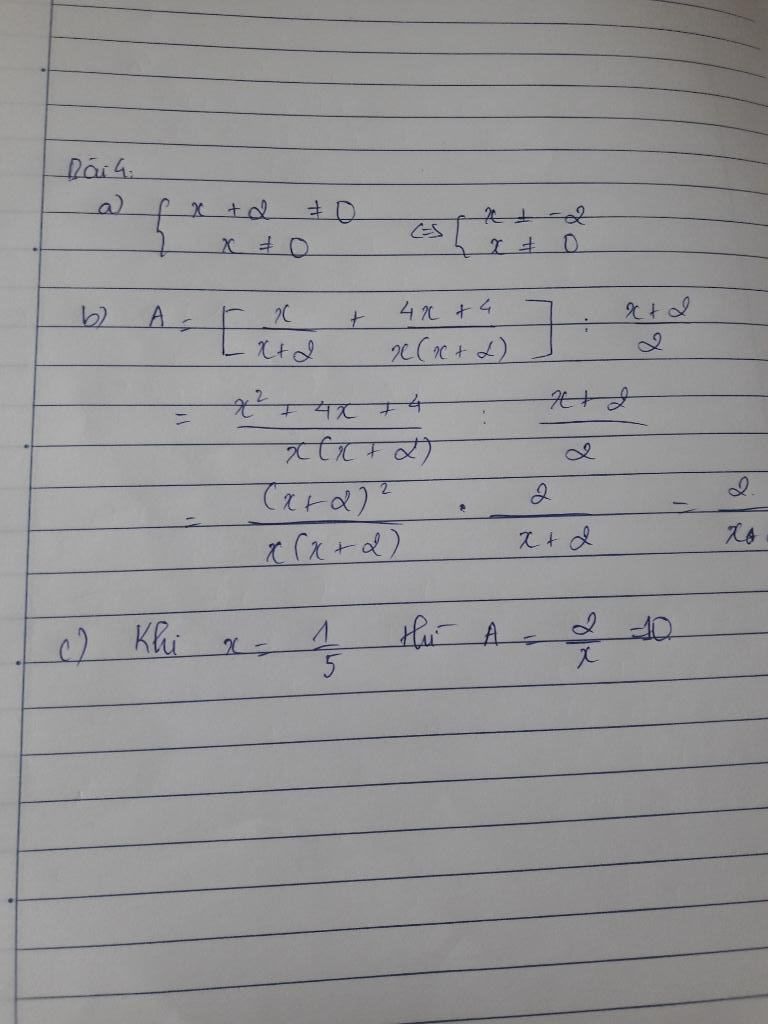 Bài 4:
a) { x + 2 ≠ 0 x ≠ 0 <=> { x ≠ -2 x ≠ 0
b) A = [ x/(x+2) + (4x + 4)/(x(x+2)) ] : (x+2)/2
= (x² + 4x + 4)/(x(x+2)) : (x+2)/2
= (x+2)²/(x(x+2)) . 2/(x+2) = 2/x
c) Khi x = 1/5 thì A = 2/x = 10